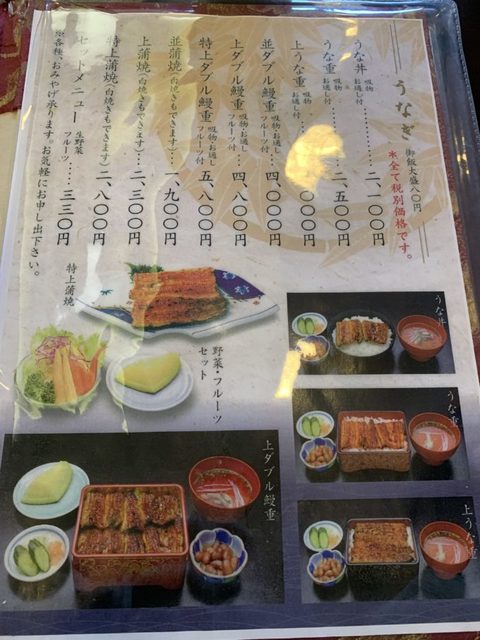 うなぎ
御飯大盛八〇円
＊全て税別価格です。
うな丼 吸物 お通し付 二、一〇〇円
うな重 吸物 お通し付 二、五〇〇円
上うな重 吸物 お通し付 〇〇〇円
並ダブル鰻重 吸物・お通し フルーツ付 四、〇〇〇円
上ダブル鰻重 吸物・お通し フルーツ付 四、八〇〇円
特上ダブル鰻重 吸物・お通し フルーツ付 五、八〇〇円
並蒲焼（白焼きもできます） 一、九〇〇円
上蒲焼（白焼きもできます） 二、三〇〇円
特上蒲焼（白焼きもできます） 二、八〇〇円
セットメニュー 生野菜 フルーツ 三三〇円
※各種、おみやげ承ります。お気軽にお申し出下さい。
特上蒲焼
野菜・フルーツ
セット
うな丼
うな重
上うな重
上ダブル鰻重